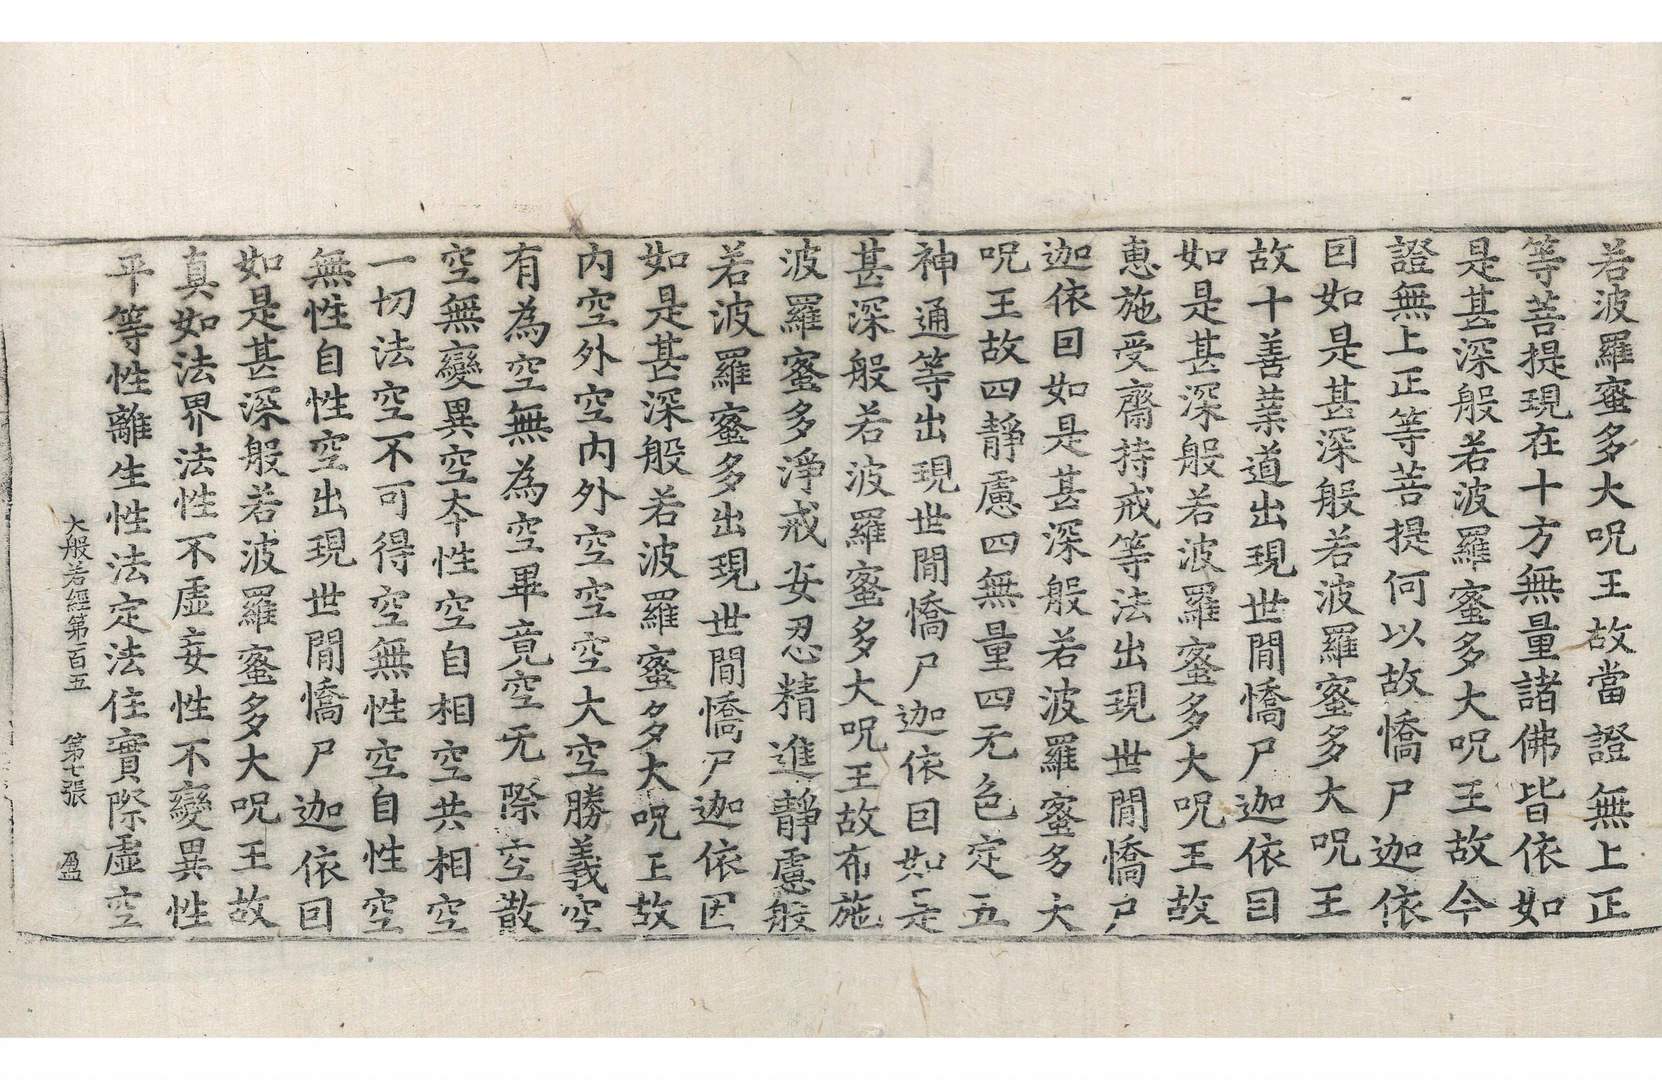 若波羅蜜多大呪王故當證無上正
等菩提現在十方無量諸佛皆依如
是甚深般若波羅蜜多大呪王故今
證無上正等菩提何以故憍尸迦依
囙如是甚深般若波羅蜜多大呪王
故十善業道出現世間憍尸迦依囙
如是甚深般若波羅蜜多大呪王故
惠施受齋持戒等法出現世間憍尸
迦依囙如是甚深般若波羅蜜多大
呪王故四靜慮四無量四无色定五
神通等出現世間憍尸迦依囙如是
甚深般若波羅蜜多大呪王故布施
波羅蜜多淨戒安忍精進靜慮般
若波羅蜜多出現世間憍尸迦依因
如是甚深般若波羅蜜多大呪王故
内空外空内外空空空大空勝義空
有為空無為空畢竟空无際空散
空無變異空夲性空自相空共相空
一切法空不可得空無性空自性空
無性自性空出現世間憍尸迦依囙
如是甚深般若波羅蜜多大呪王故
真如法界法性不虛妄性不變異性
平等性離生性法定法住實際虛空
大般若經第一百五 第七張 盈